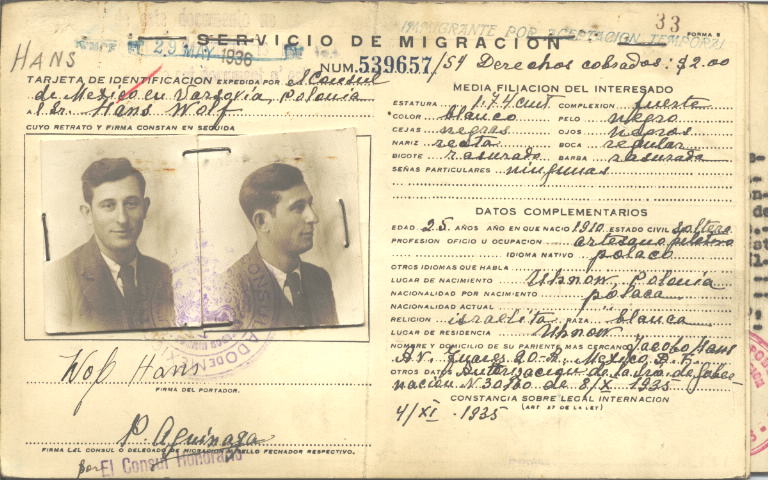 33
IMMIGRANTE POR ACEPTACION TEMPORAL
FORMA 5
29 MAY 1936
SERVICIO DE MIGRACION
HANS
NUM. 539657 /54 Derechos cobrados: $2.00
TARJETA DE IDENTIFICACION EXPEDIDA POR el Consul
de Mexico en Varsovia, Polonia
A Sr. Hans Wolf
CUYO RETRATO Y FIRMA CONSTAN EN SEGUIDA
Wolf Hans
FIRMA DEL PORTADOR.
P. Aguinaga
FIRMA DEL CONSUL O DELEGADO DE MIGRACION Y SELLO FECHADOR RESPECTIVO.
por El Consul Honorario
MEDIA FILIACION DEL INTERESADO
ESTATURA 1.74 cmt COMPLEXION fuerte
COLOR blanco PELO negro
CEJAS negras OJOS negros
NARIZ recta BOCA regular
BIGOTE rasurado BARBA rasurada
SEÑAS PARTICULARES ningunas
DATOS COMPLEMENTARIOS
EDAD 25 AÑOS AÑO EN QUE NACIO 1910 ESTADO CIVIL soltero
PROFESION OFICIO U OCUPACION artesano
IDIOMA NATIVO polaco
OTROS IDIOMAS QUE HABLA
LUGAR DE NACIMIENTO Uhnow, Polonia
NACIONALIDAD POR NACIMIENTO polaca
NACIONALIDAD ACTUAL
RELIGION israelita RAZA blanca
LUGAR DE RESIDENCIA Uhnow
NOMBRE Y DOMICILIO DE SU PARIENTE MAS CERCANO Jacobo Hans
Av. Juarez 90-A, Mexico D. F.
OTROS DATOS Autorizacion de la Sria. de Gober-
nacion N. de 8/X 1935
CONSTANCIA SOBRE LEGAL INTERNACION
(ART 57 DE LA LEY)
4/XI - 1935